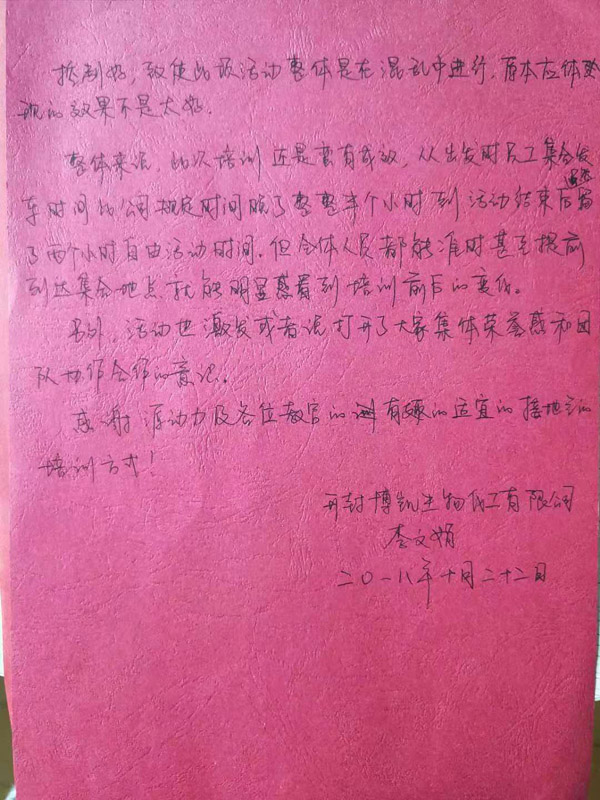 控制好，致使此项活动整体是在混乱中进行，原本应体现
现的效果不是太好．
整体来说，此次培训还是蛮有成效，从出发时员工集合发
车时间比公司规定时间晚了整整半个小时到活动结束后留
了两个小时自由活动时间．但全体人员都能准时甚至提前
到达集合地点就能明显感看到培训前后的变化。
另外，活动也激发或者说打开了大家集体荣誉感和团
队协作合作的意识。
感谢源动力及各位教官的有趣的适宜的接地气的
培训方式！
开封博凯生物化工有限公司
李文娟
二〇一八年十月二十二日